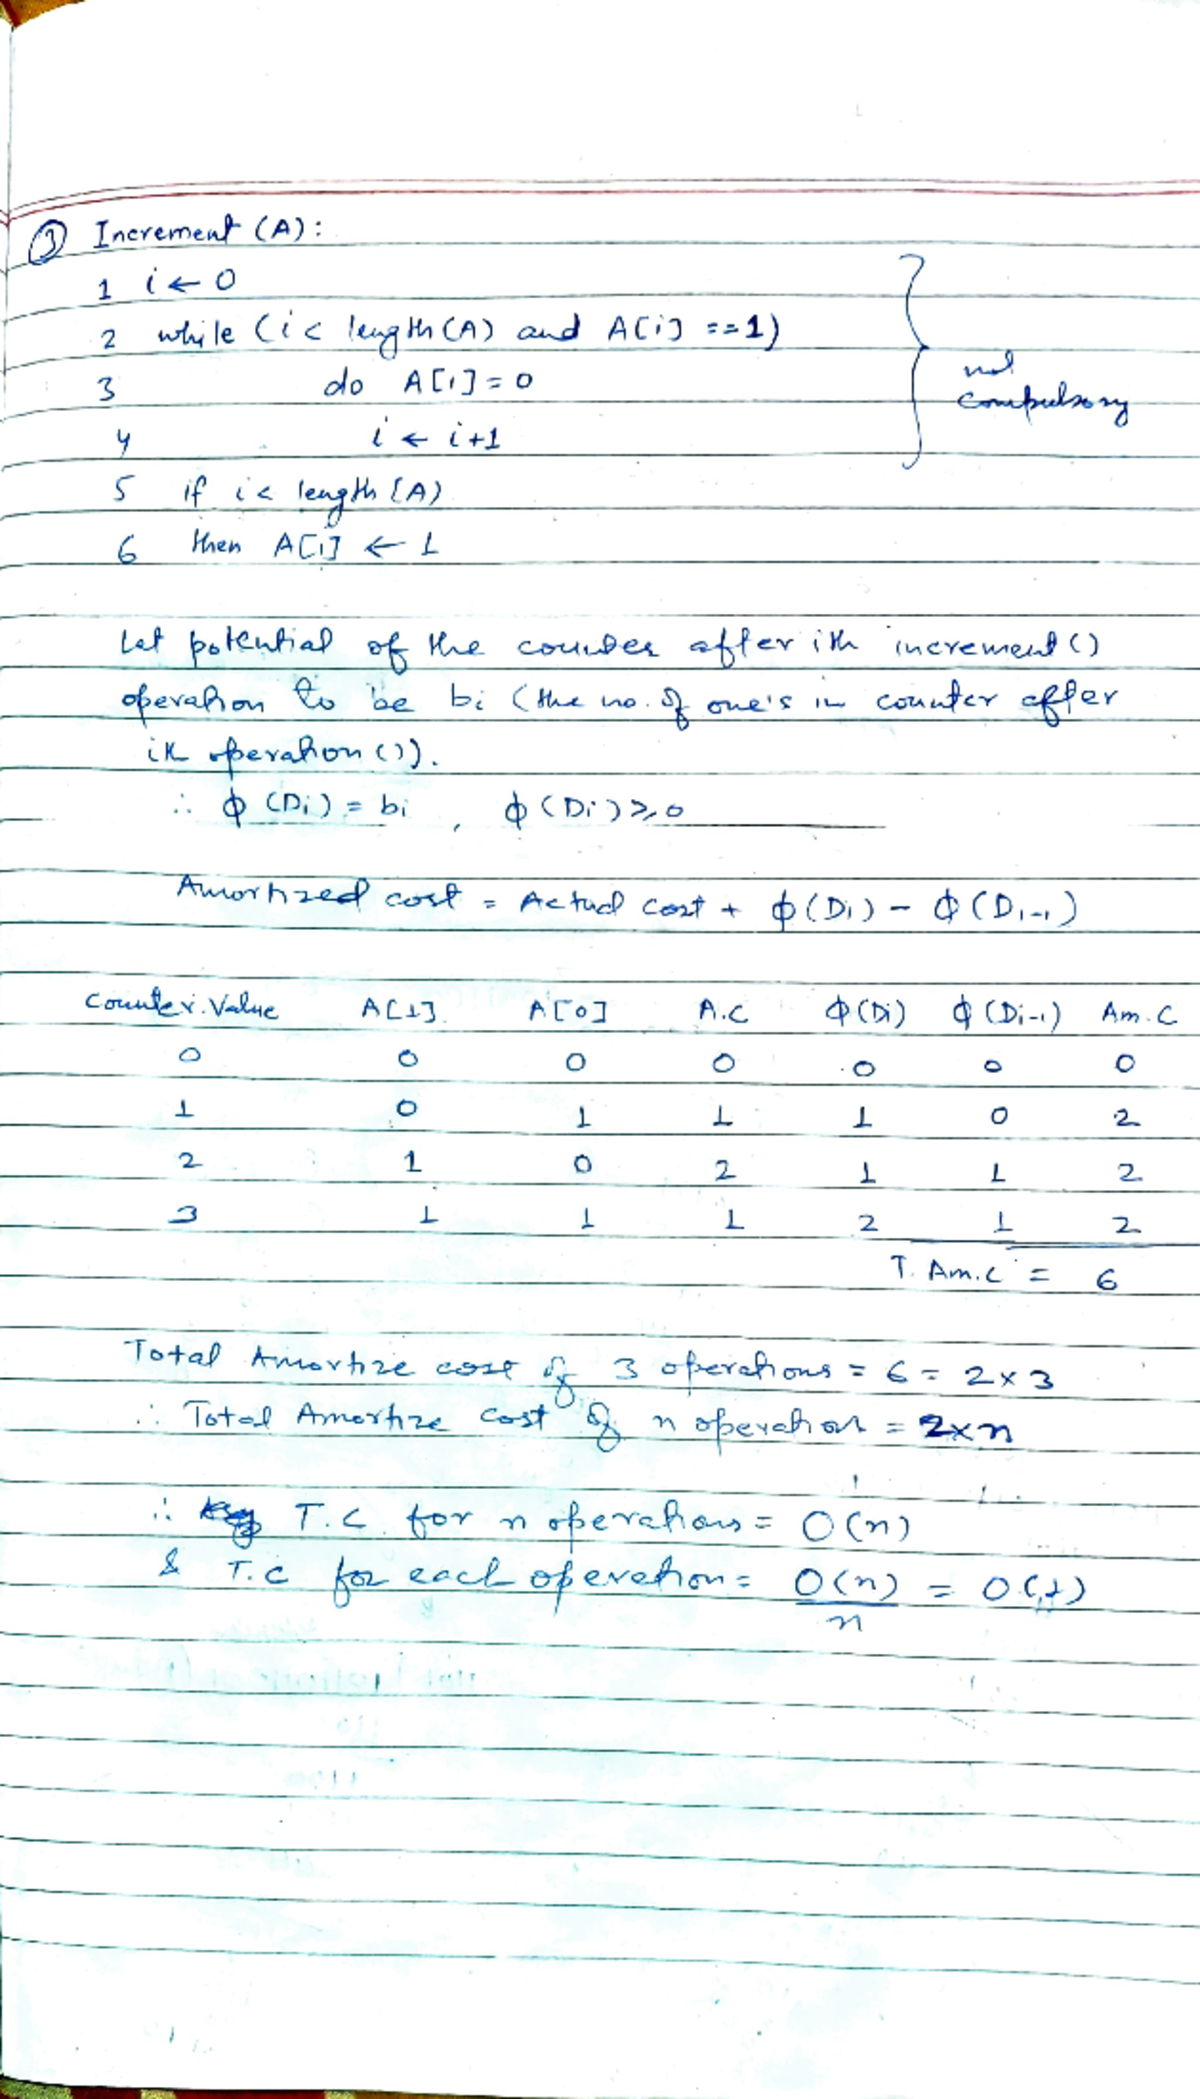 ③ Increment (A):
1 i ← 0
2 while (i < length(A) and A[i] == 1)
3 do A[i] = 0
4 i ← i+1
not compulsory
5 if i < length (A)
6 then A[i] ← 1
Let potential of the counter after ith increment ()
operation to be bi (the no. of one's in counter after
ith operation ()).
∴ ϕ (Di) = bi , ϕ (Di) ≥ 0
Amortized cost = Actual cost + ϕ(Di) - ϕ(Di-1)
Counter Value A[1] A[0] A.C ϕ(Di) ϕ(Di-1) Am.C
0 0 0 0 0 0 0
1 0 1 1 1 0 2
2 1 0 2 1 1 2
3 1 1 1 2 1 2
T. Am.C = 6
Total Amortize cost of 3 operations = 6 = 2×3
∴ Total Amortize cost of n operation = 2×n
∴ T.C. for n operations = O(n)
& T.C for each operation = O(n)/n = O(1)